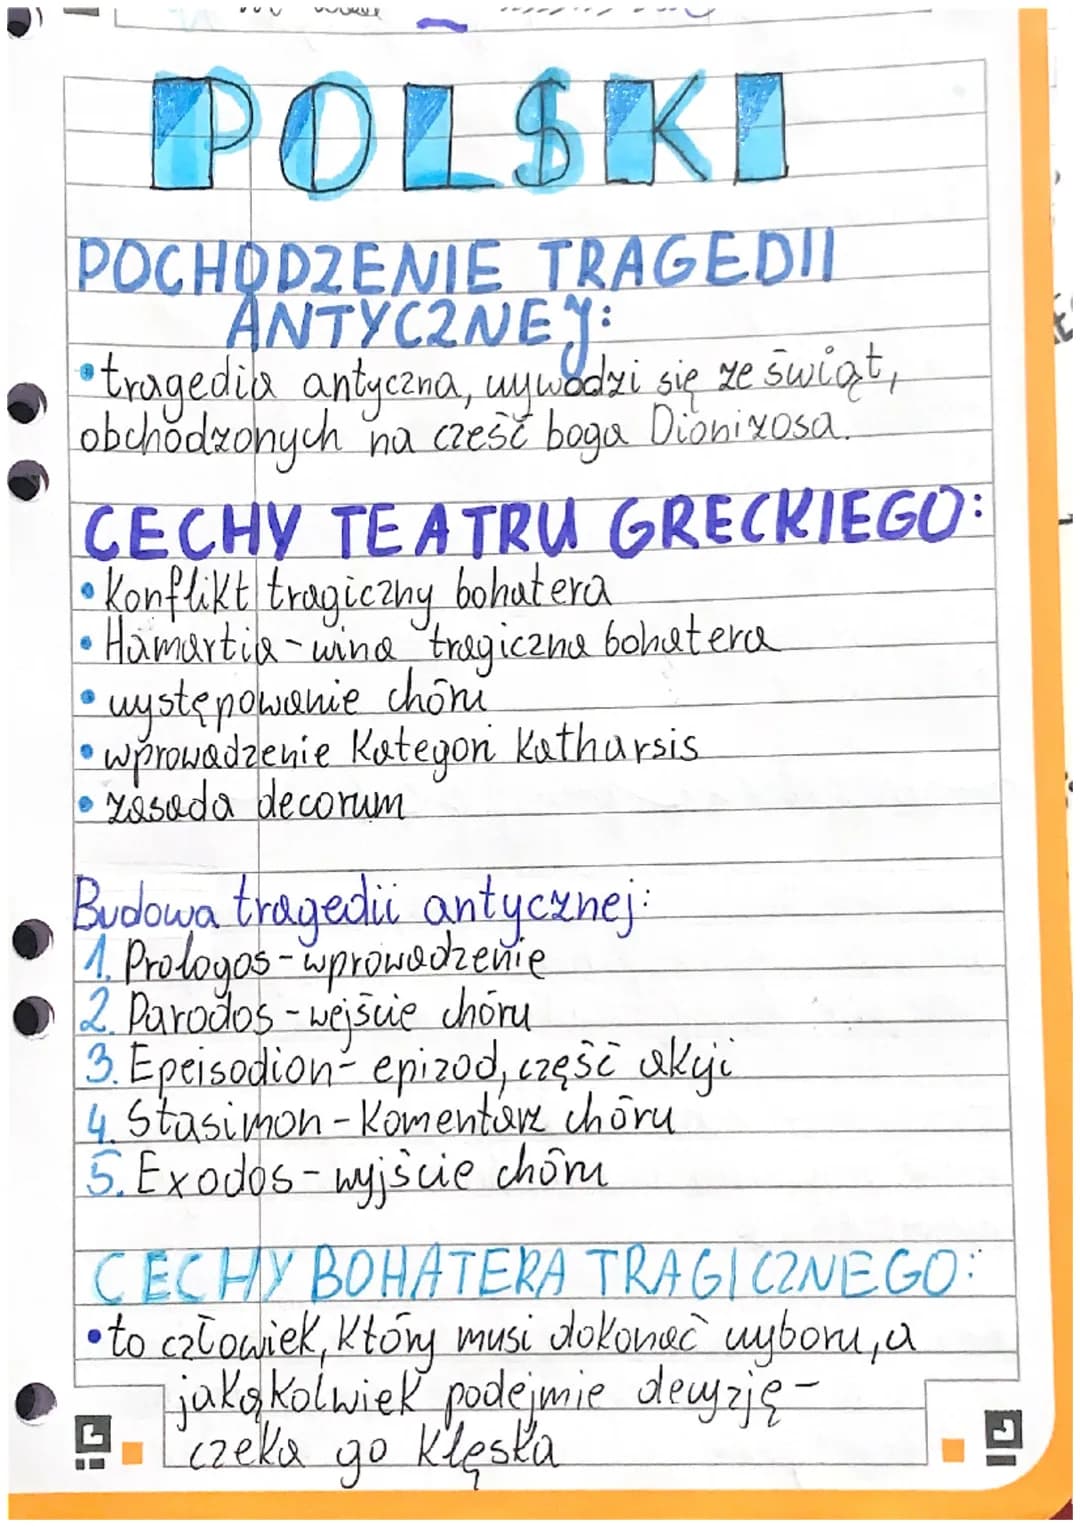 POLSKI
POCHODZENIE TRAGEDII
ANTYCZNEJ:
•tragedia antyczna, wywodzi się ze świąt,
obchodzonych na cześć boga Dionizosa.
CECHY TEATRU GRECKIEGO:
• Konflikt tragiczny bohatera
• Hamartia - wina tragiczna bohatera
• występowanie chóru
• wprowadzenie Kategori Katharsis
• zasada decorum
Budowa tragedii antycznej:
1. Prologos - wprowadzenie
2. Parodos - wejście chóru
3. Epeisodion - epizod, część akcji
4. Stasimon - Komentarz chóru
5. Exodos - wyjście chóru
CECHY BOHATERA TRAGICZNEGO:
• to człowiek, Który musi dokonać wyboru, a
jakąkolwiek podejmie decyzję -
czeka go Klęska